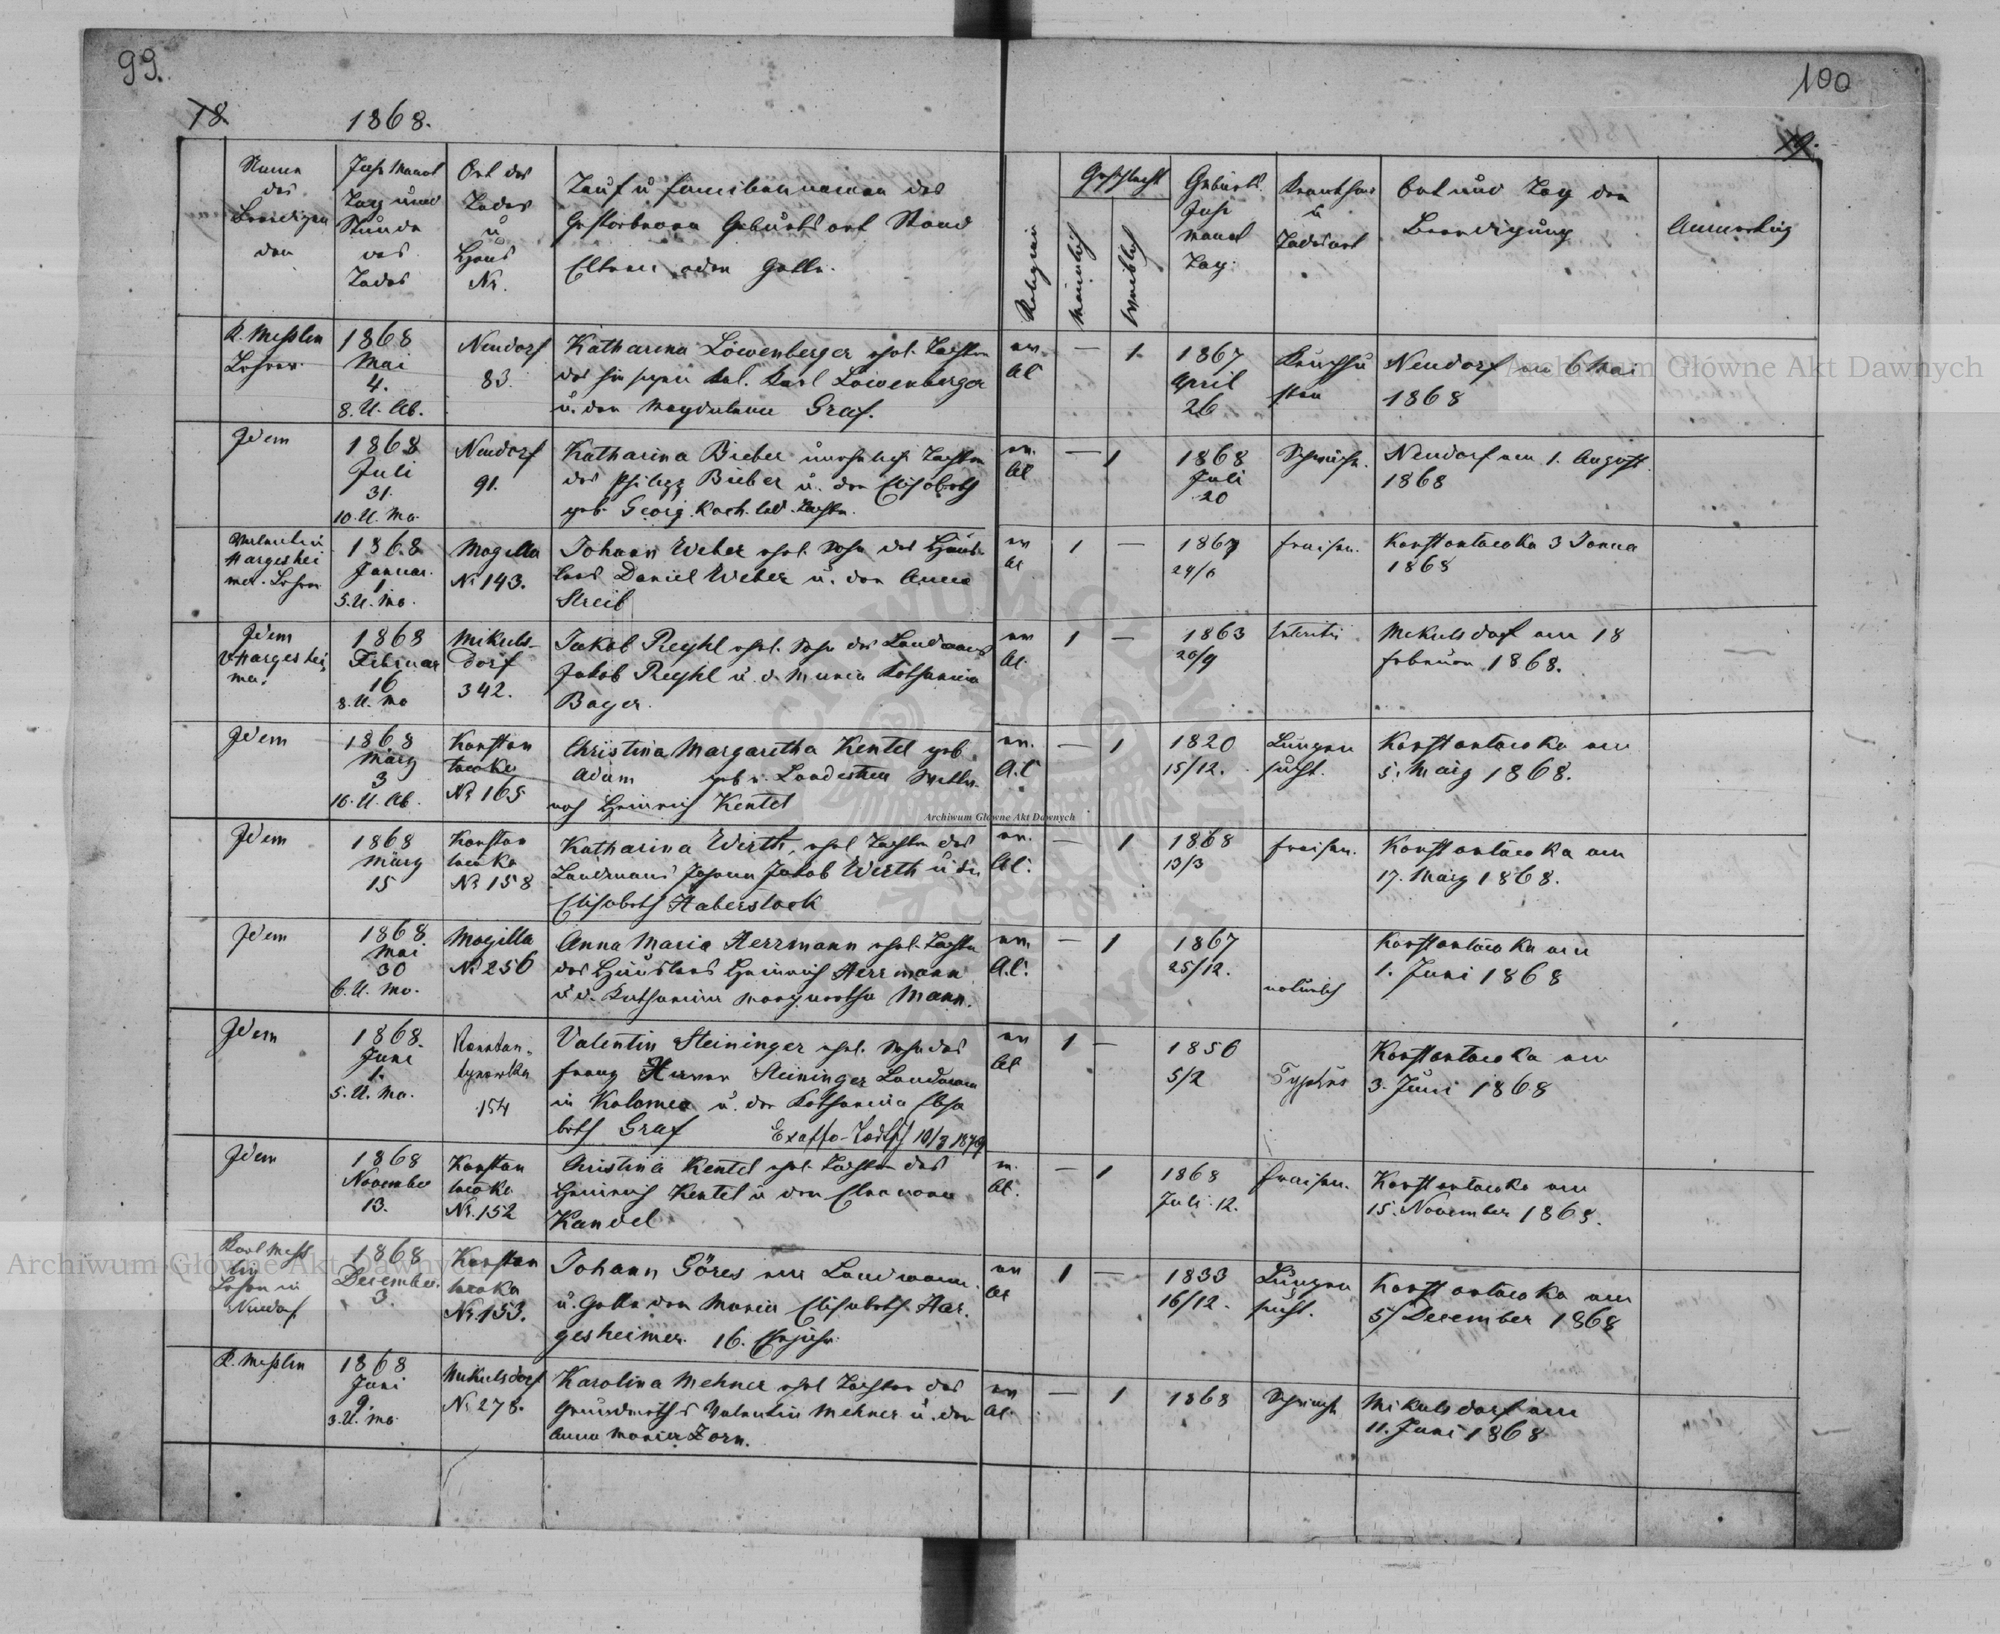 99.
100
18.
1868.
19.
Name
des
Beerdigen
den
Jahr Monat
Tag und
Stunde
des
Todes
Ort des
Todes
u
Haus
Nr.
Tauf u Familiennamen des
Gestorbenen Geburtsort Stand
Eltern oder Gatte.
Religion
Geschlecht
männlich
weiblich
Geburts
Jahr
Monat
Tag.
Krankheit
u
Todesart
Ort und Tag der
Beerdigung
Anmerkung
K. Messlin
Lehrer
1868
Mai
4.
8. U. Ab.
Neudorf
83.
Katharina Löwenberger ehel. Tochter
des hiesigen Karl Löwenberger
u. der Magdalena Graf.
ev.
AC
— 1.
1867
April
26
Keuchhu
sten
Neudorf am 6 Mai
1868
Idem
1868
Juli
31.
10. U. Mo.
Neudorf
91.
Katharina Bieber uneheliche Tochter
des Philipp Bieber u. der Elisabeth
geb. Georg Koch led. Tochter.
ev.
AC
— 1
1868
Juli
20
Schwäche.
Neudorf am 1. August
1868
Valentin
Hargeshei
mer. Lehrer
1868
Januar.
1.
5. U. Mo.
Mogilla
Nr 143.
Johann Weber ehel. Sohn des Häus
lers Daniel Weber u. der Anna
Streib
ev
AC
1 —
1867
24/6
Fraisen.
Konstantowka 3 Janua
1868
Idem
V Hargeshei
mer.
1868
Februar
16
8. U. Mo
Mikuls-
dorf
342.
Jakob Reyhl ehel. Sohn des Landmans
Jakob Reyhl u. d. Maria Katharina
Bayer.
ev
AC.
1 —
1863
20/9
Mikulsdorf am 18
Februar 1868.
Idem
1868
März
3
10. U. Ab.
Konstan
towka
Nr 165
Christina Margaretha Kentel geb.
Adam
Heinrich Kentel
ev.
A.C
— 1
1820
15/12.
Lungen
sucht.
Konstantowka am
5. März 1868.
Idem
1868
März
15
Konstan
towka
Nr 158
Katharina Wirth, ehel Tochter des
Landmans Johann Jakob Wirth u der
Elisabeth Haberstock
ev.
AC.
— 1
1868
13/3
Fraisen.
Konstantowka am
17. März 1868.
Idem
1868.
Mai
30
6. U. Mo.
Mogilla
Nr 256
Anna Maria Herrmann ehel. Tochter
des Häuslers Heinrich Herrmann
u d. Katharina Margaretha Mann.
ev.
A.C.
— 1
1867
25/12.
natürlich
Konstantowka am
1. Juni 1868
Idem
1868.
Juni
1.
5. U. Mo.
Konstan-
tynowka
154
Valentin Steininger ehel. Sohn des
Franz Steininger Landmann
in Kolomea u. der Katharina Elisa
beth Graf
10/3 1879
ev
AC
1 —
1856
5/2
Typhus
Konstantowka am
3. Juni 1868
Idem
1868
November
13.
Konstan
towka
Nr. 152
Christina Kentel ehel. Tochter des
Heinrich Kentel u der Eleanora
Kandel
AC.
— 1
1868
Juli 12.
Fraisen.
Konstantowka am
15. November 1868.
Karl Mess
lin
Lehrer in
Neudorf
1868
December.
3.
Konstan
towka
Nr. 153.
Johann Göres ein Landmann.
u. Gatte der Maria Elisabeth Har.
gesheimer. 16. Ehejahr.
ev
AC
1 —
1833
16/12.
Lungen
sucht.
Konstantowka am
5/ December 1868
K. Messlin
1868
Juni
9.
3. U. Mo
Mikulsdorf
Nr. 278.
Karolina Mehner ehel Tochter des
Grundwirths Valentin Mehner u. der
Anna Maria Zorn.
ev
AC.
— 1
1868
Schwach
Mikulsdorf am
11. Juni 1868
Archiwum Główne Akt Dawnych
Archiwum Główne Akt Dawnych
Archiwum Główne Akt Dawnych